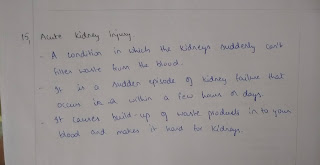 15, Acute Kidney Injury
- A condition in which the kidneys suddenly can't
filter waste from the blood.
- It is a sudden episode of kidney failure that
occurs in within a few hours or days.
- It causes build-up of waste products in to your
blood and makes it hard for kidneys.